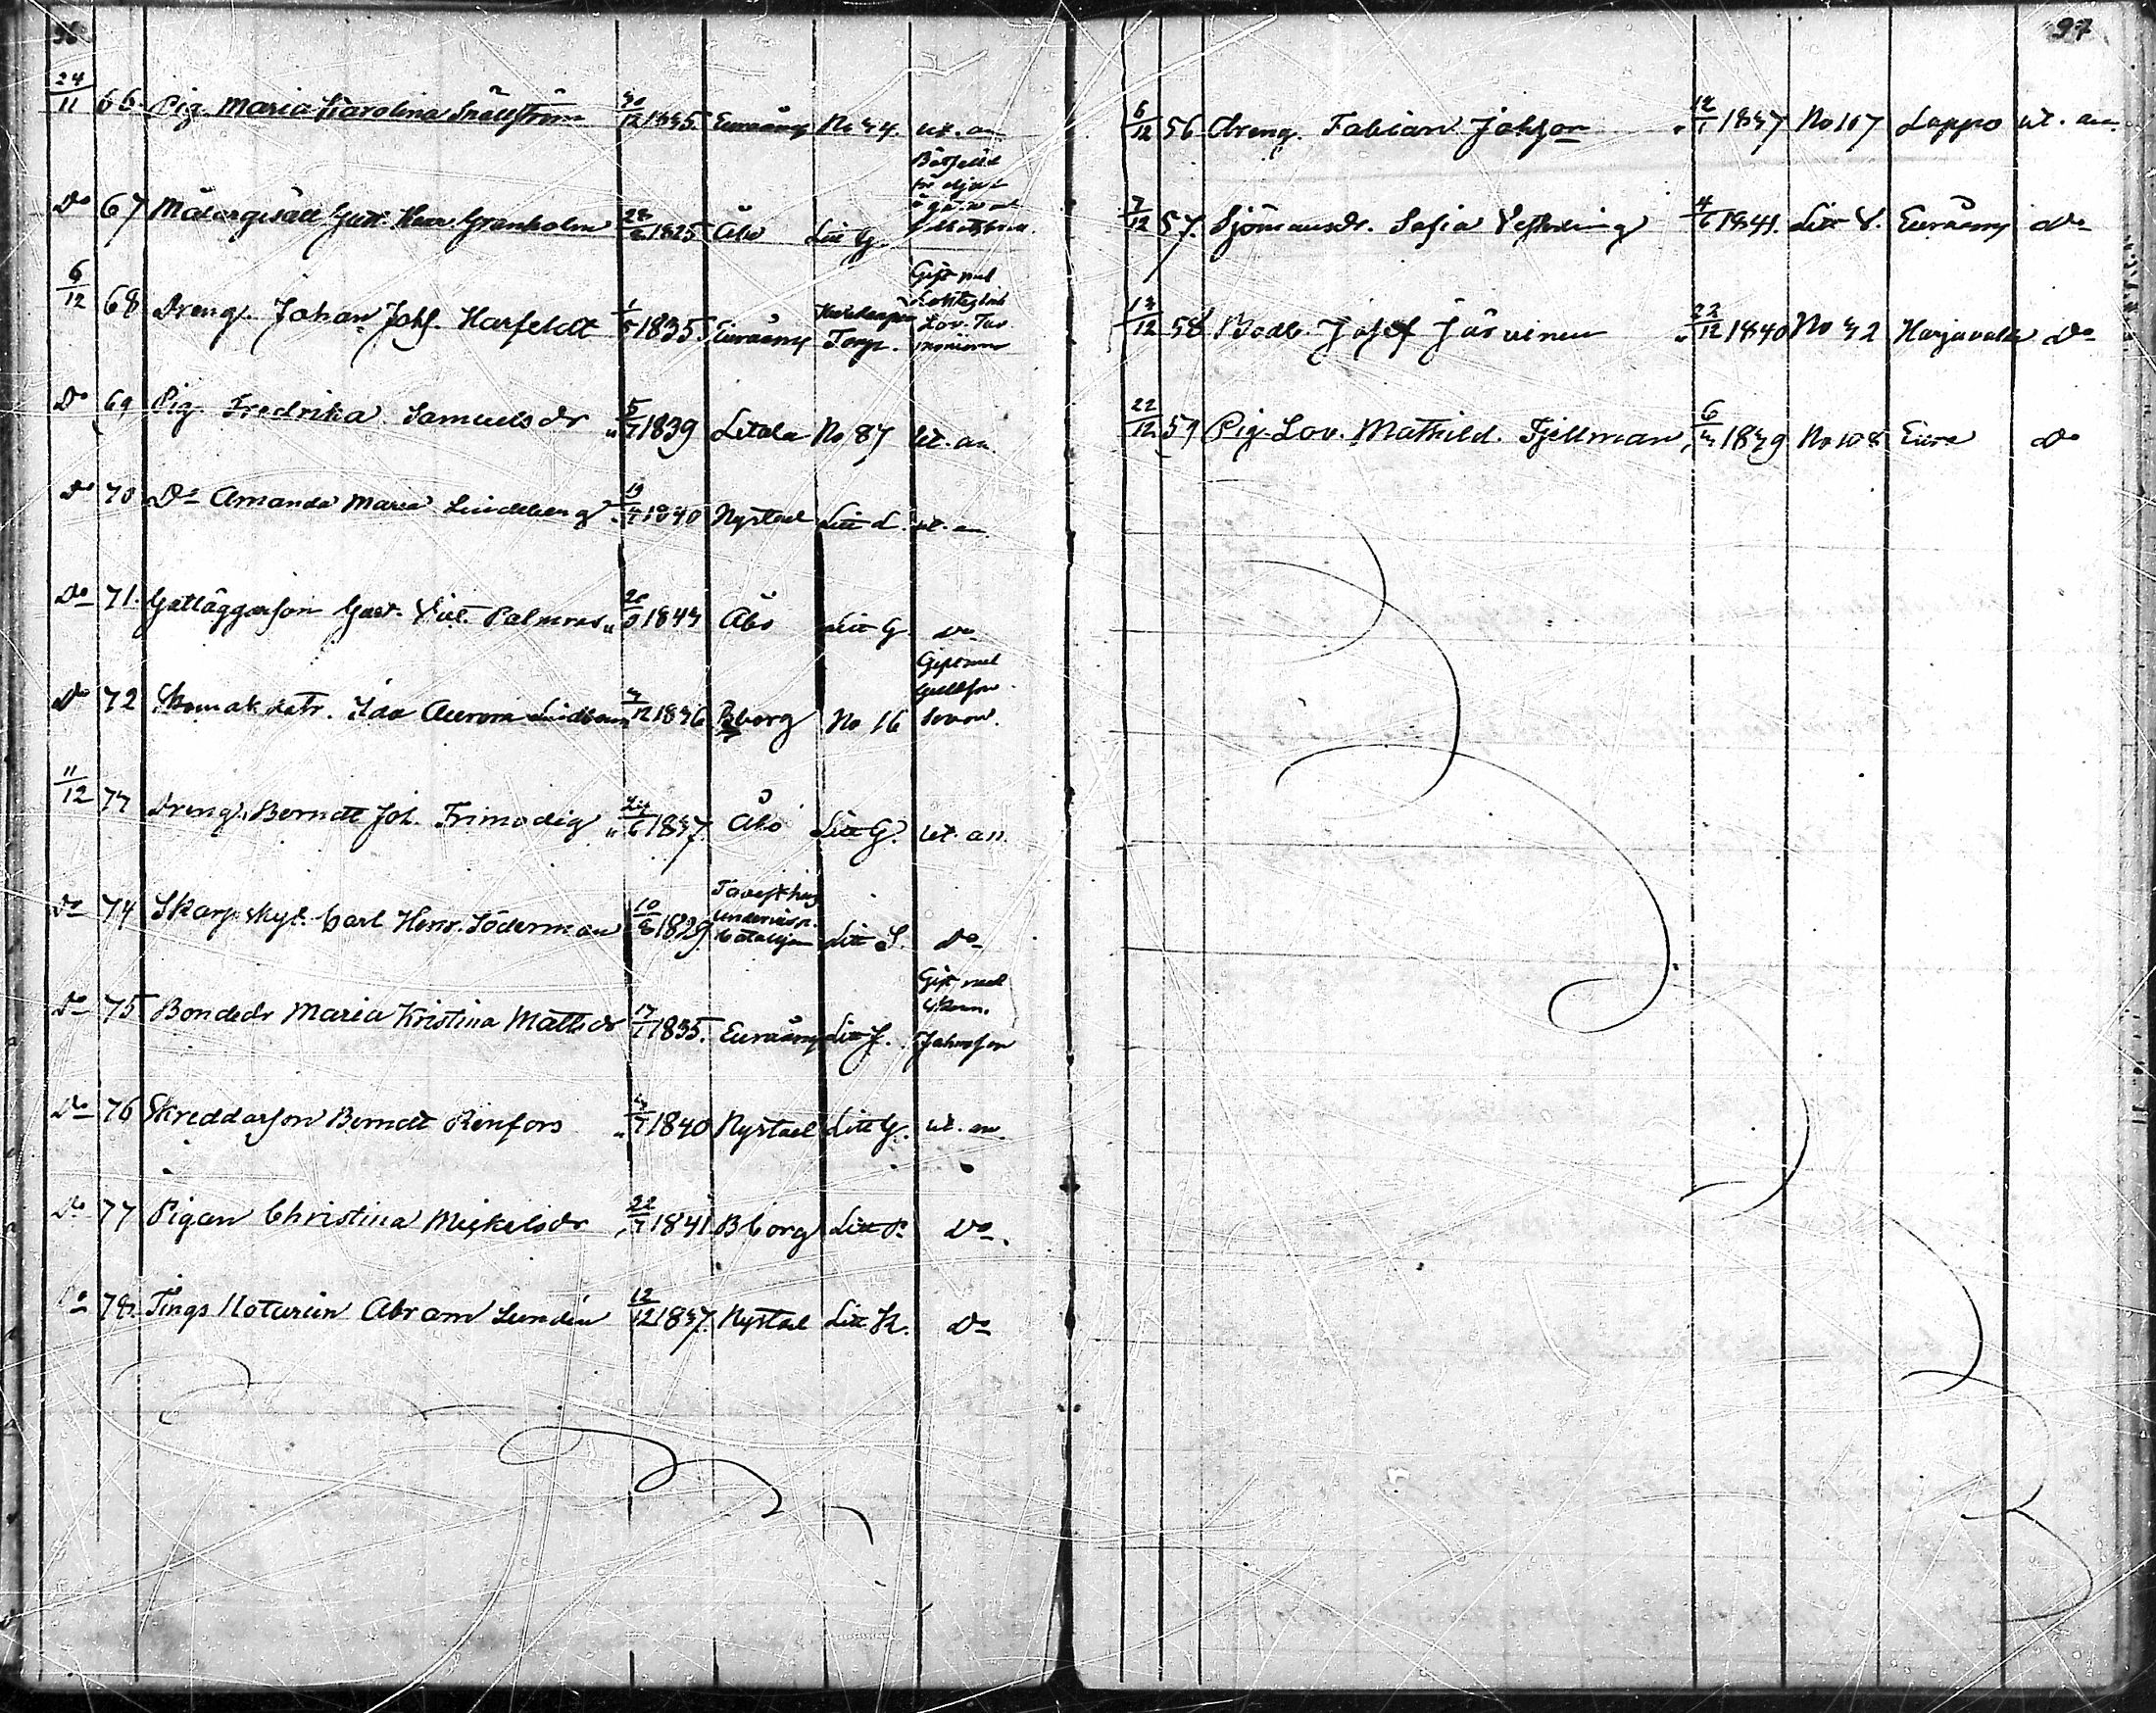 96
24/11 66. Pig. Maria Karolina Snällström 30/12 1835. Euraåmy No 34. ut. an
Do 67 Målargesäll Gust. Henr. Granholm 1825 Åbo Litt G.
6/12 68 Dreng. Johan Johs. Harfeldt 1/5 1835 Euraåmy Torp. Gift med Lov.
Do 69 Pig. Fredrika Samuelsdr " 5/7 1839 Letala No 87 ut. an.
Do 70 Do Amanda Maria Lindeberg 19/4 1840 Nystad Litt L. ut. an.
Do 71. Gust. Vil. Palmros " 1843 Åbo Litt G Do
Do 72 Skomak dotr. Ida Aurora 3/12 1836 Bborg No 16 Gift med
11/12 73 Dreng. Berndt Joh. Frimodig " 24/6 1837. Åbo Litt G. ut. an.
Do 74 Skarpskyt. Carl Henr. Söderman 10/8 1829. Tavesthus Litt S. Do
Do 75 Bondedr Maria Kristina Mattsdr 17/1 1835. Euraåmy Litt J. Gift med Johnsson
Do 76 Skreddarson Berndt Renfors " 3/7 1840 Nystad Litt G. ut. an.
Do 77 Pigan Christina Mickelsdr 22/7 1841 Bborg Litt P. Do
Do 78. Tings Notarien Abram Lundén 12/12 1837. Nystad Litt K. Do
97
6/12 56 Dreng. Fabian Johsson " 12/1 1837 No 107 Lappo ut. an.
7/12 57. Sjömansdr. Sofia Vesterling 4/6 1841. Litt V. Euraåmy Do
13/12 58 Bodb. Josef Järvinen " 22/12 1840 No 32 Harjavalta Do
22/12 59 Pig. Lov. Mathild. Fjellman 6/3 1839 No 108 Eura Do